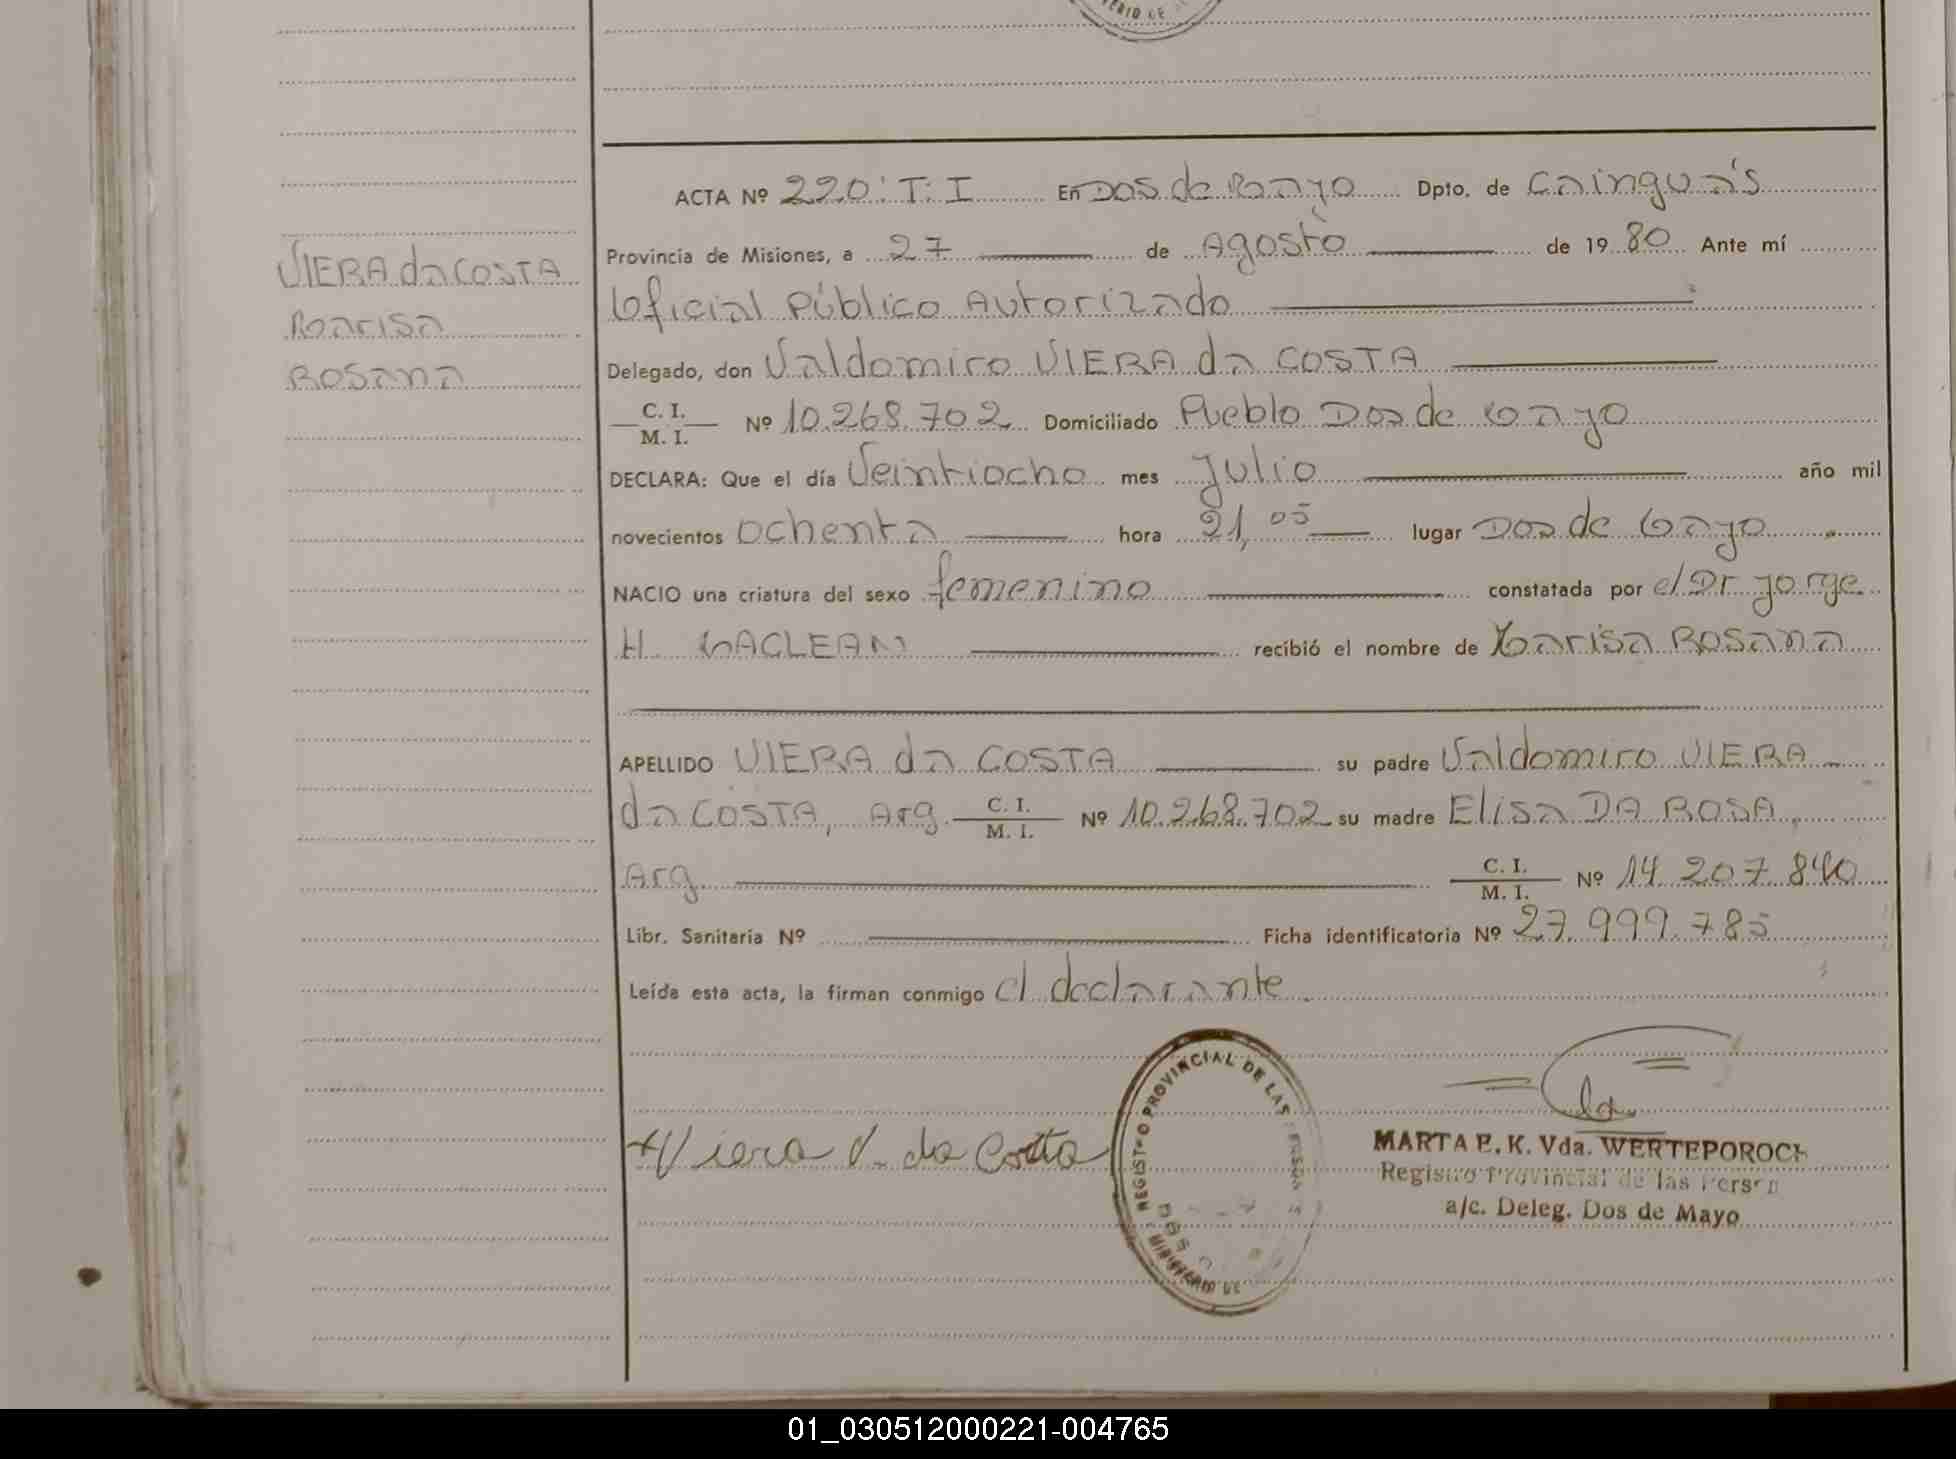 ERIO DE
ACTA Nº 220: T: I En Dos de Mayo Dpto. de Cainguás
Provincia de Misiones, a 27 de Agosto de 1980 Ante mí
Oficial Público Autorizado
Delegado, don Valdomiro VIERA da COSTA
C. I.
M. I. Nº 10.268.702 Domiciliado Pueblo Dos de Mayo
DECLARA: Que el día Veintiocho mes Julio año mil
novecientos Ochenta hora 21,05 lugar Dos de Mayo
NACIO una criatura del sexo femenino constatada por el Dr Jorge
H. MACLEAN recibió el nombre de Marisa Rosana
APELLIDO VIERA da COSTA su padre Valdomiro VIERA
da COSTA, Arg. C. I. M. I. Nº 10.268.702 su madre Elisa DA ROSA,
Arg. C. I. M. I. Nº 14 207.840
Libr. Sanitaria Nº Ficha identificatoria Nº 27.999.785
Leída esta acta, la firman conmigo el declarante.
VIERA da COSTA
Marisa
ROSANA
Viera V. da Costa
REGISTRO PROVINCIAL DE LAS PERSON
MINISTERIO DE
MARTA E. K. Vda. WERTEPOROCH
Registro Provincial de las Person
a/c. Deleg. Dos de Mayo
01_030512000221-004765